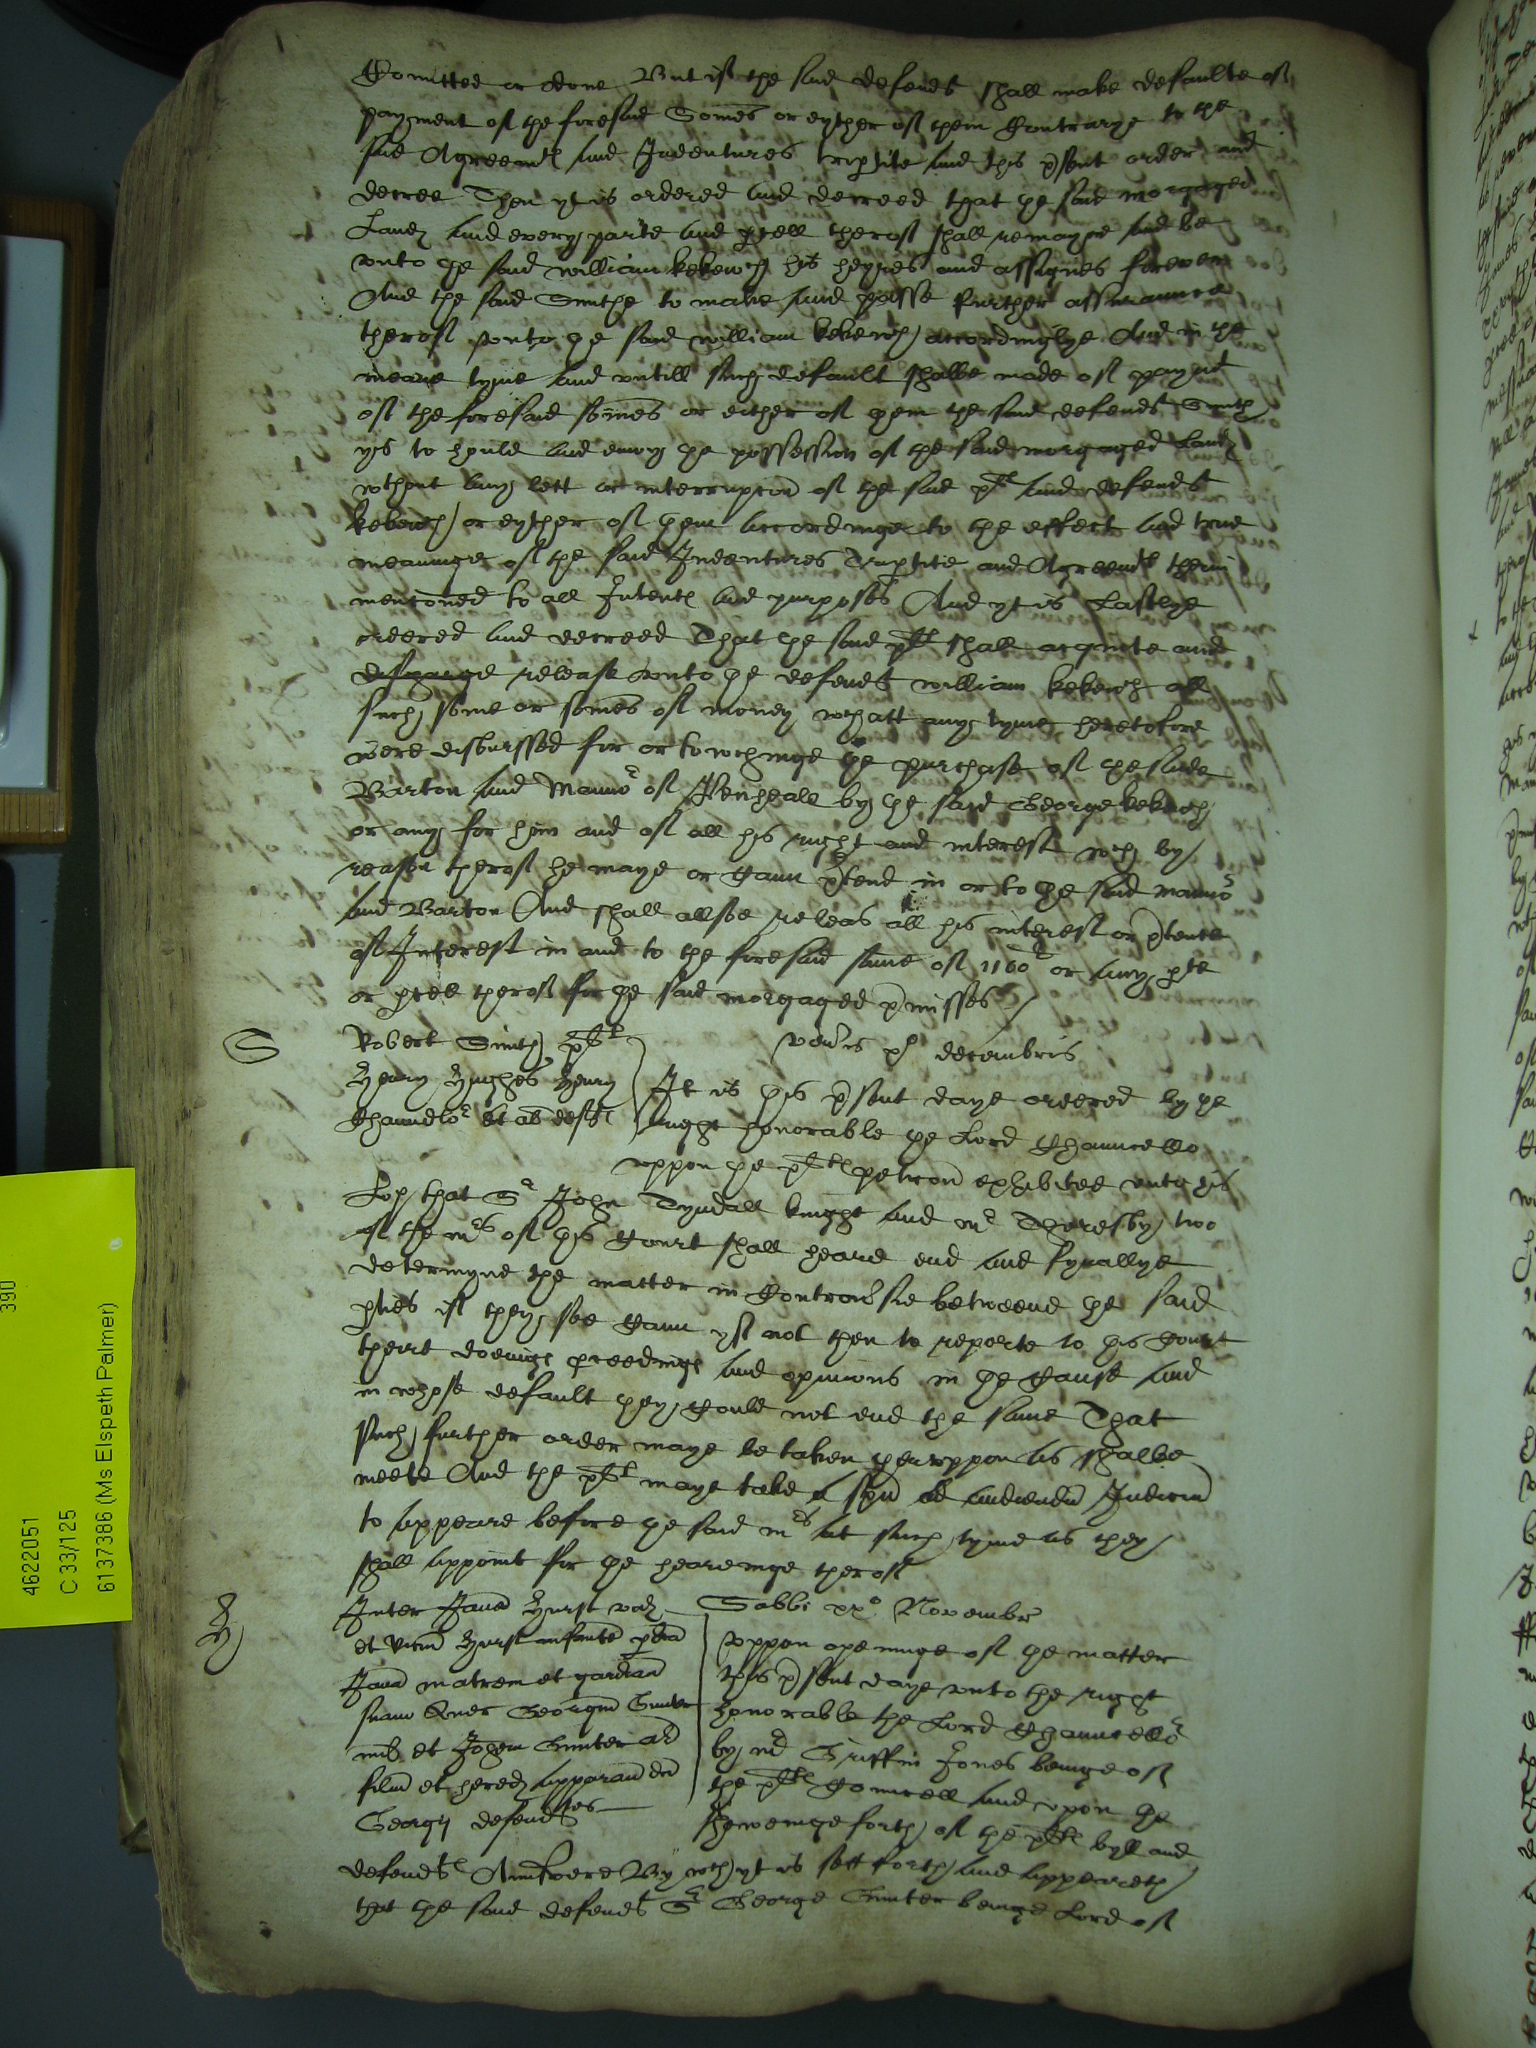 Comitted or done But if the said defendt shall make defaulte of
payment of the foresaid Somes or eyther of them Contrarye to the
said Agreemtes and Indentures trip̱tite and this p̱sent order and
decree Then yt is ordered and decreed that the said morgaged
Landes and every parte and p̱cell therof shall remayne and be
vnto the said william kekewch his heyres and assignes forever
And the said Smithe to make and passe further assuraunce
therof vnto the said william kekewch accordinglye And in the
meane tyme and vntill such default shalbe made of paymt
of the foresaid somes or either of them the said defendt Smith
ys to hould and enioy the possession of the said morgaged Landes
wthout any lett or interrupcon of the said plt and defendt
kekewch or eyther of them accordinge to the effect and true
meaninge of the said Indentures Trip̱tite and Agreemtes therin
menconed to all Intentes and purposes And yt is Lastlye
ordered and decreed That the said plt shall acquite and
discharge release vnto the defendt william kekewch all
such some or somes of money wch att any tyme heretofore
were disbursed for or towchinge the purchase of the saide
Barton and Mannor of Penheale by the said George kekewch
or any for him and of all his right and interest wch by
reason therof he maye or cann p̱tend in or to the said mannor
and Barton And shall allsoe releas all his interest or p̱tence
of Interest in and to the foresaid some of 1160l or any p̱te
or p̱cell therof for the said morgaged p̱misses
S
Robert Smith plt
Henry Hughes Henry
Chaundlor et al deftes
ven̄is po decembris
It is this p̱sent daye ordered by the
right honorable the Lord Chauncellor
vppon the pltes peticon exhibited vnto his
Lop that Sr John Tyndall knight and mr Thoresby two
of the mrs of this Court shall heare end and fynallye
determyne the matter in Controūsie betweene the said
p̱ties if they soe cann yf not then to reporte to this Court
theire doeinges p̱ceedinges and opinions in the Cause and
in whose default they could not end the same That
such further order maye be taken thervppon as shalbe
meete And the plt maye take a spn̄ ad audiendu Iudiciu
to appeare before the said mrs at such tyme as they
shall appoint for the heareinge therof
H
Inter Hurst vid
et Hurst infante p̱
matrem et gardian
suam Quer Georgiu Gunter
mil et Johem Gunter ar
filiu et hered apparan dci
Georgij defendtes
Sabbi xxo Novembr
Vppon openinge of the matter
this p̱sent daye vnto the right
honorable the Lord Chauncellor
by mr Griffin Jones beinge of
the pltes Councell and vpon the
sheweinge forth of the pltes byll and
defendtes Aunswere By wch yt is sett forth and appeareth
that the said defendt Sr George Gunter beinge Lord of
4622051
390
C 33/125
6137386 (Ms Elspeth Palmer)